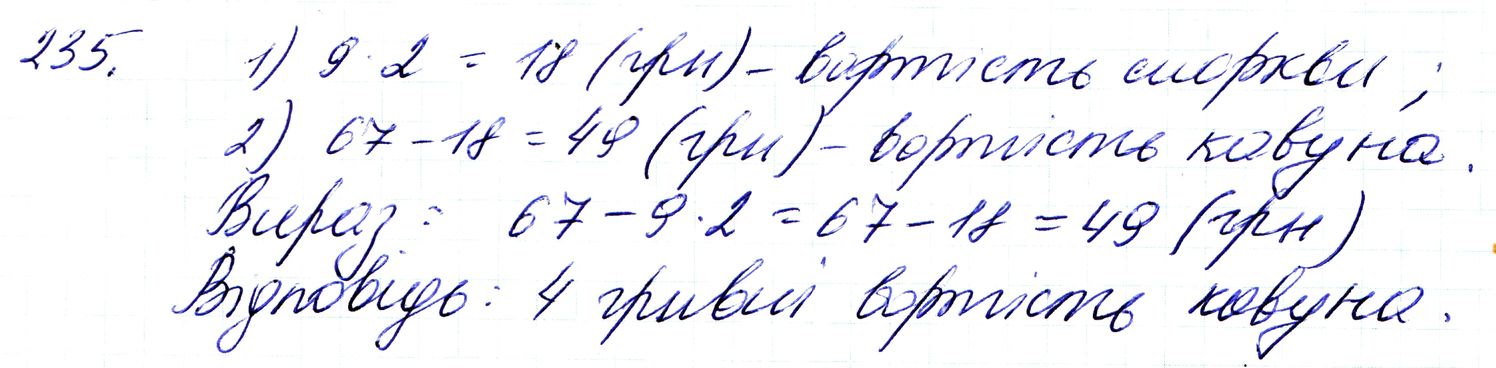 235. 1) 9·2 = 18 (грн) – вартість моркви;
2) 67 – 18 = 49 (грн) – вартість кавуна.
Вираз: 67 – 9·2 = 67 – 18 = 49 (грн)
Відповідь: 4 гривні вартість кавуна.